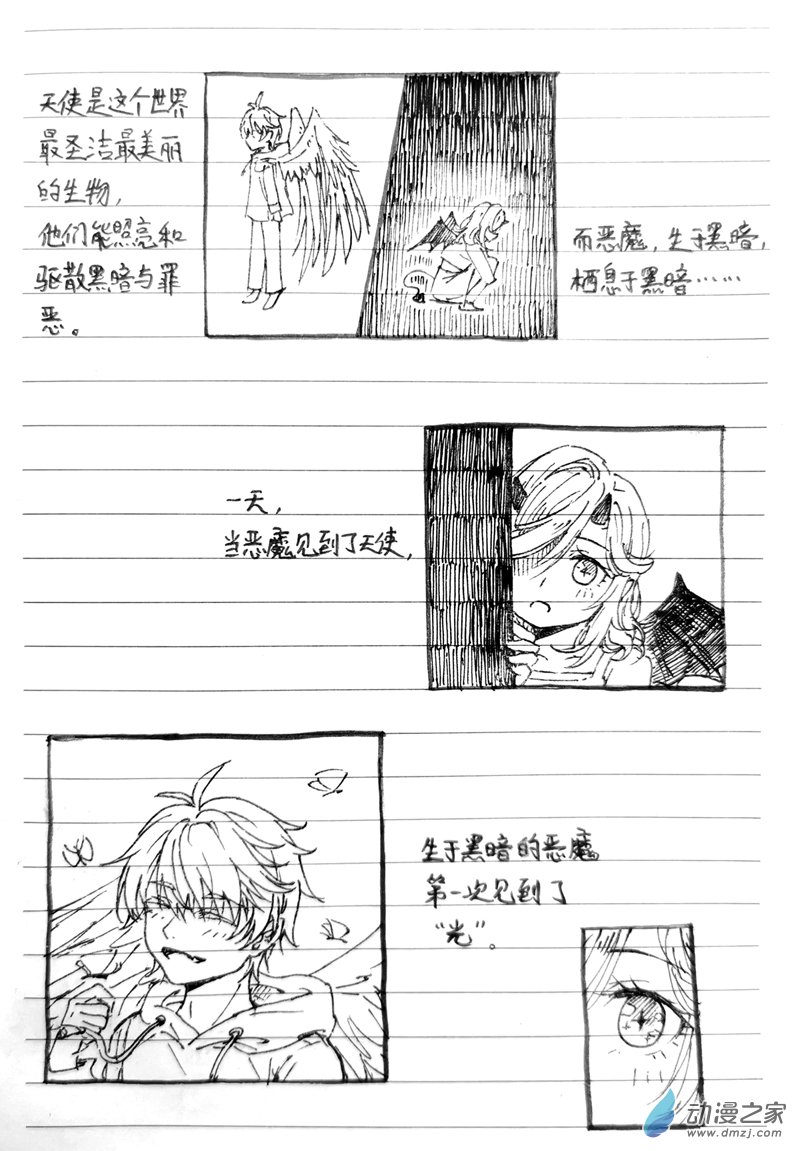 天使是这个世界
最圣洁最美丽
的生物，
他们能照亮和
驱散黑暗与罪
恶。
而恶魔，生于黑暗，
栖息于黑暗……
一天，
当恶魔见到了天使，
生于黑暗的恶魔
第一次见到了
“光”。
动漫之家
www.dmzj.com